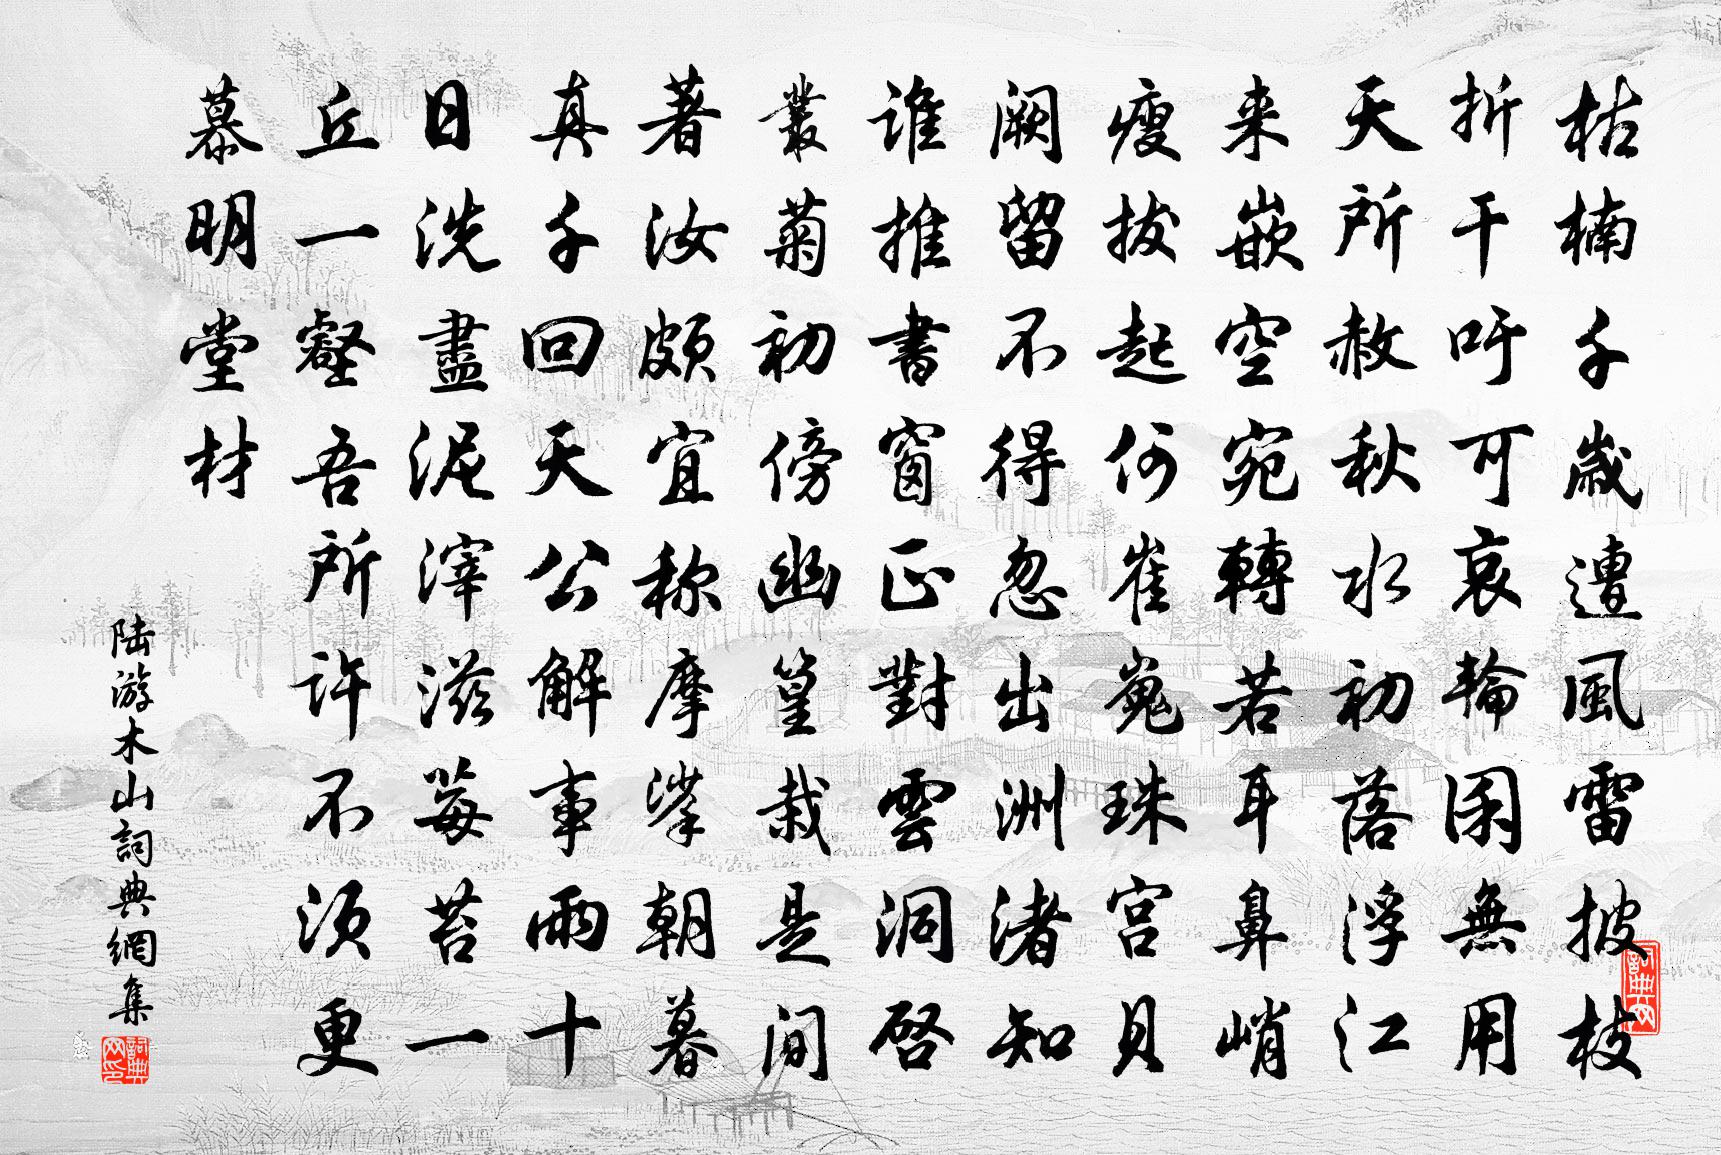 枯楠千歲遭風雷披枝
折干吁可哀輪囷無用
天所赦秋水初落浮江
来嵌空宛轉若耳鼻峭
瘦拔起何崔嵬珠宮貝
阙留不得忽出洲渚知
谁推書窗正對雲洞啓
叢菊初傍幽篁栽是间
著汝颇宜称摩挲朝暮
真千回天公解事雨十
日洗盡泥滓滋莓苔一
丘一壑吾所許不须更
慕明堂材
陆游木山詞典網集
詞典网
詞典网印